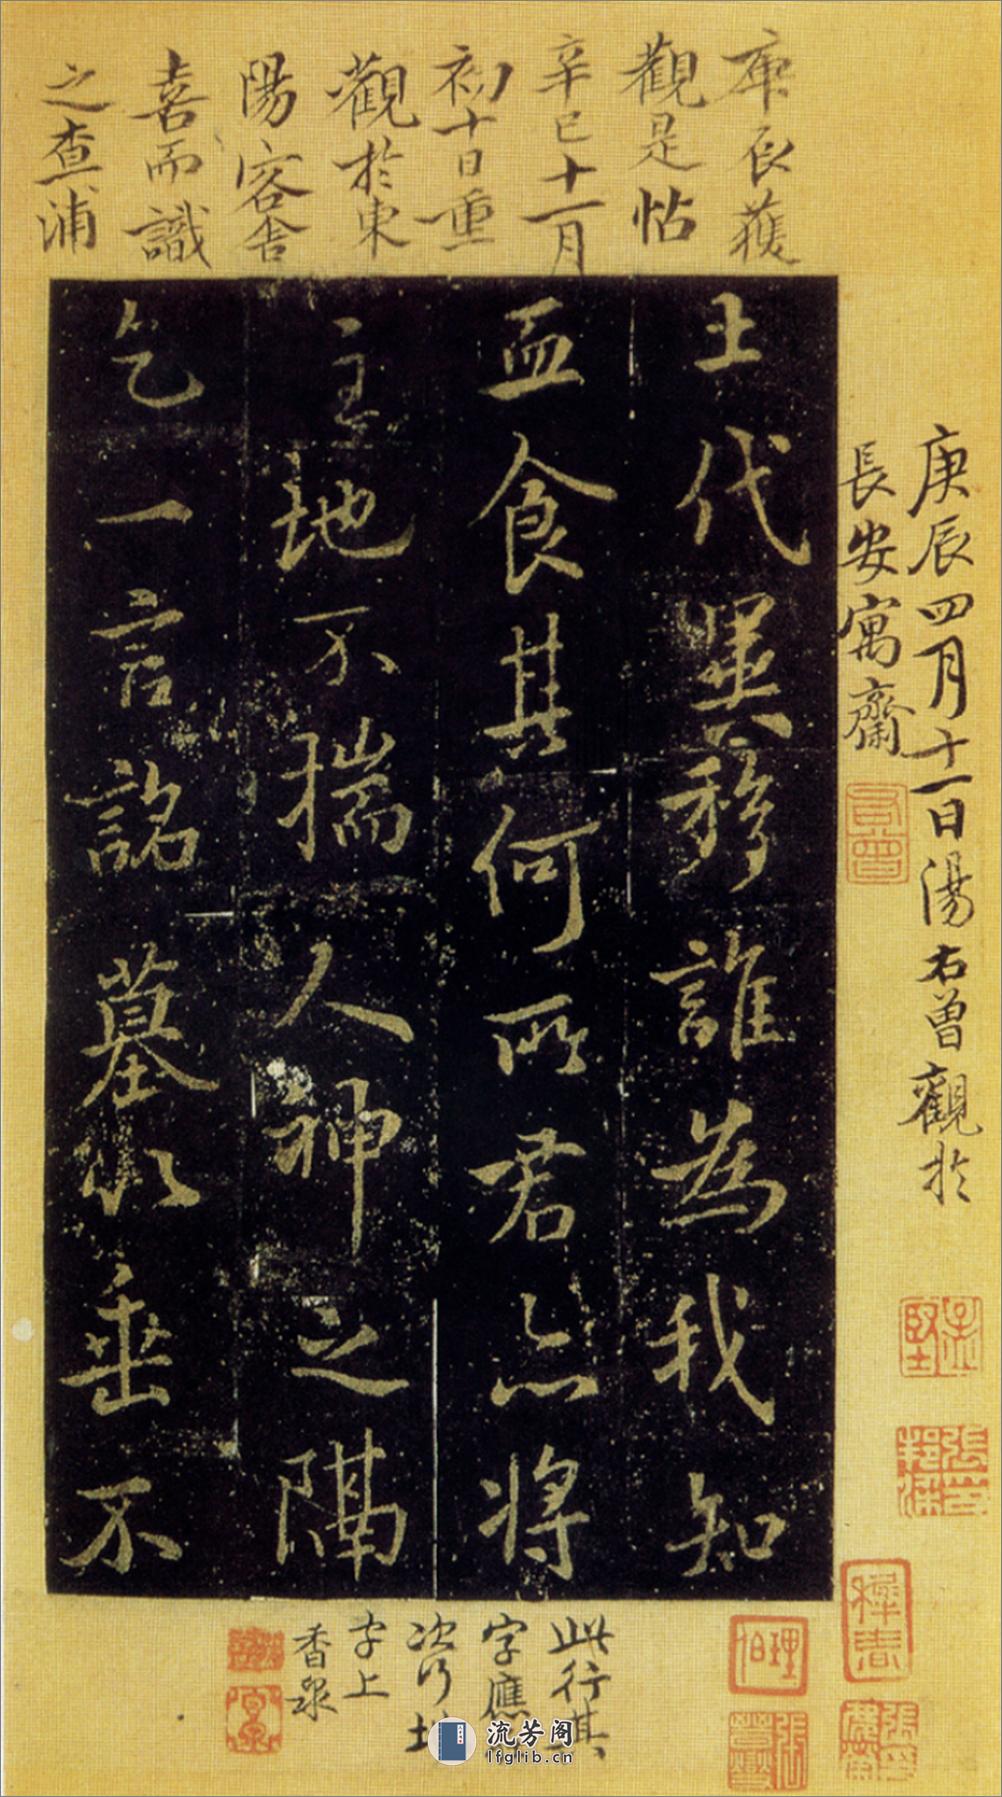 庚辰獲
觀是帖
辛巳十一月
初十日重
觀於東
陽客舍
喜而識
之查浦
庚辰四月十一日湯右曾觀於
長安寓齋
右曾
土代異移誰為我知
血食其何所君亦將
主地不揣人神之隔
乞一言銘墓以垂不
此行其
字應
次行地
字上
香泉
流芳阁
lfglib.cn